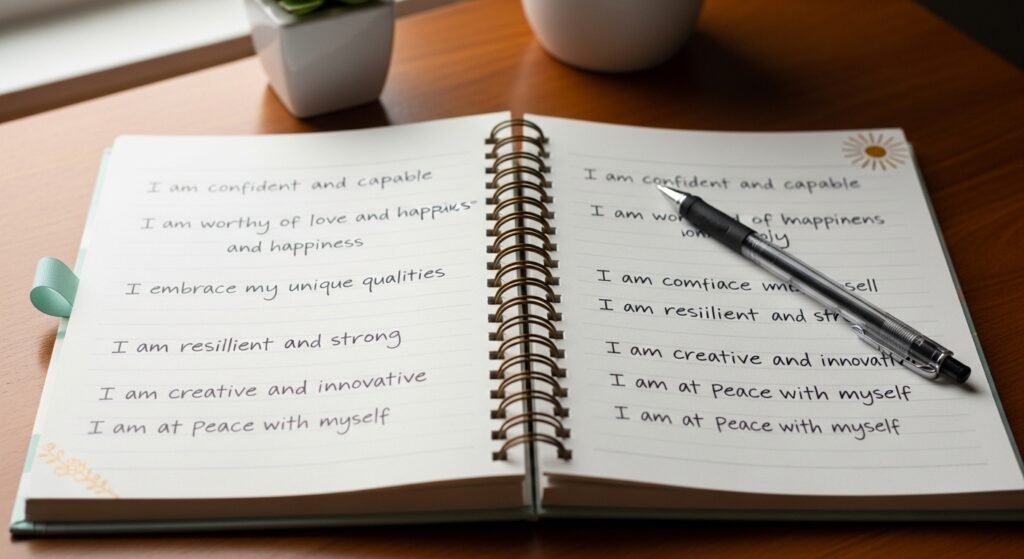 I am confident and capable
I am worthy of love and
and happiness
I embrace my unique qualities
I am resillient and strong
I am creative and innovative
I am at peace with myself
I am confident and capable
I am of
I am comfiace sell
I am resiilient and
I am creative and
I am at peace with myself
I am at peace with myself